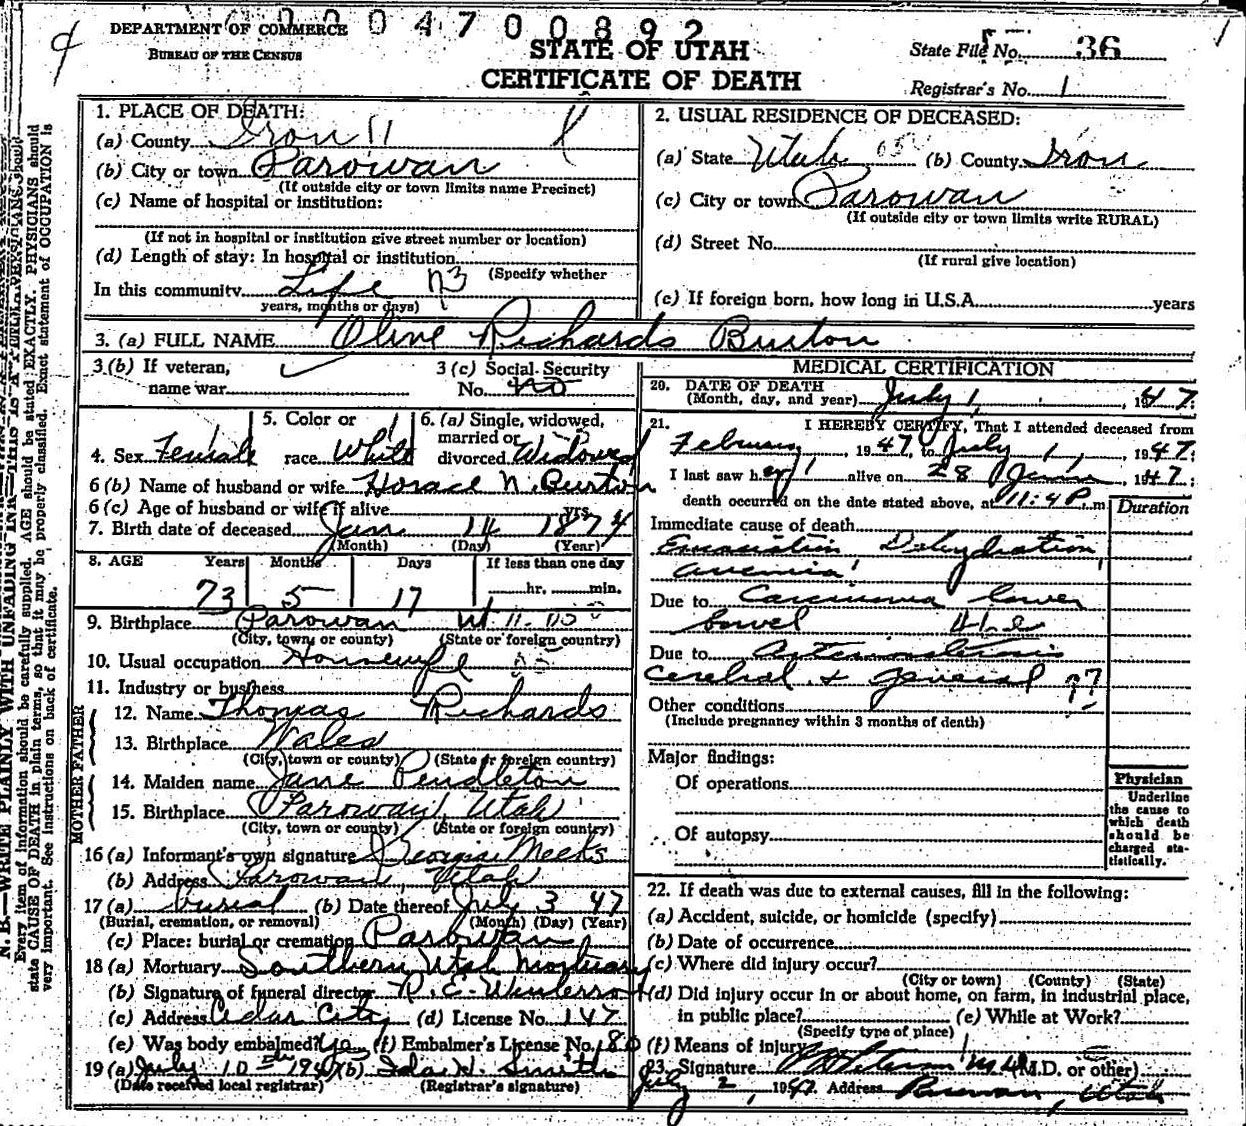 DEPARTMENT OF COMMERCE
BUREAU OF THE CENSUS
0004700892
STATE OF UTAH
CERTIFICATE OF DEATH
State File No. 36
Registrar's No. 1
1. PLACE OF DEATH:
(a) County Iron 11
(b) City or town Parowan
(If outside city or town limits name Precinct)
(c) Name of hospital or institution:
(If not in hospital or institution give street number or location)
(d) Length of stay: In hospital or institution
(Specify whether
In this community Life
years, months or days)
2. USUAL RESIDENCE OF DECEASED:
(a) State Utah (b) County Iron
(c) City or town Parowan
(If outside city or town limits write RURAL)
(d) Street No.
(If rural give location)
(e) If foreign born, how long in U.S.A. years
3. (a) FULL NAME Olive Richards Burton
3 (b) If veteran,
name war
3 (c) Social Security
No. no
4. Sex Female
5. Color or
race White
6. (a) Single, widowed,
married or
divorced Widowed
6 (b) Name of husband or wife Horace N. Burton
6 (c) Age of husband or wife if alive yrs.
7. Birth date of deceased Jan 14 1874
(Month) (Day) (Year)
8. AGE Years Months Days If less than one day
73 5 17 hr. min.
9. Birthplace Parowan Ut.
(City, town or county) (State or foreign country)
10. Usual occupation Housewife
11. Industry or business
FATHER
12. Name Thomas Richards
13. Birthplace Wales
(City, town or county) (State or foreign country)
MOTHER
14. Maiden name Jane Pendleton
15. Birthplace Parowan, Utah
(City, town or county) (State or foreign country)
16 (a) Informant's own signature Georgia Meeks
(b) Address Parowan, Utah
17 (a) burial (b) Date thereof July 3 47
(Burial, cremation, or removal) (Month) (Day) (Year)
(c) Place: burial or cremation Parowan
18 (a) Mortuary Southern Utah Mortuary
(b) Signature of funeral director
(c) Address Cedar City (d) License No. 147
(e) Was body embalmed? Yes (f) Embalmer's License No. 180
19 (a) July 10th 1947 (b) Ida H. Smith
(Date received local registrar) (Registrar's signature)
MEDICAL CERTIFICATION
20. DATE OF DEATH
(Month, day, and year) July 1, 1947.
21. I HEREBY CERTIFY, That I attended deceased from
February, 1947, to July 1, 1947.
I last saw her alive on 28 June, 1947;
death occurred on the date stated above, at 11:4 P. m.
Duration
Immediate cause of death
Emaciation Dehydration,
anemia
Due to Carcinoma lower
bowel
Due to Arteriosclerosis
Cerebral & general ??
Other conditions
(Include pregnancy within 3 months of death)
Major findings:
Of operations
Of autopsy
Physician
Underline
the cause to
which death
should be
charged sta-
tistically.
22. If death was due to external causes, fill in the following:
(a) Accident, suicide, or homicide (specify)
(b) Date of occurrence
(c) Where did injury occur?
(City or town) (County) (State)
(d) Did injury occur in or about home, on farm, in industrial place,
in public place? (e) While at Work?
(Specify type of place)
(f) Means of injury
23. Signature M.D. (M.D. or other)
July 2, 1947 Address Parowan, Utah
N. B.—WRITE PLAINLY WITH UNFADING INK—THIS IS A PERMANENT
Every item of information should be carefully supplied. AGE should be stated EXACTLY. PHYSICIANS should
state CAUSE OF DEATH in plain terms, so that it may be properly classified. Exact statement of OCCUPATION is
very important. See instructions on back of certificate.